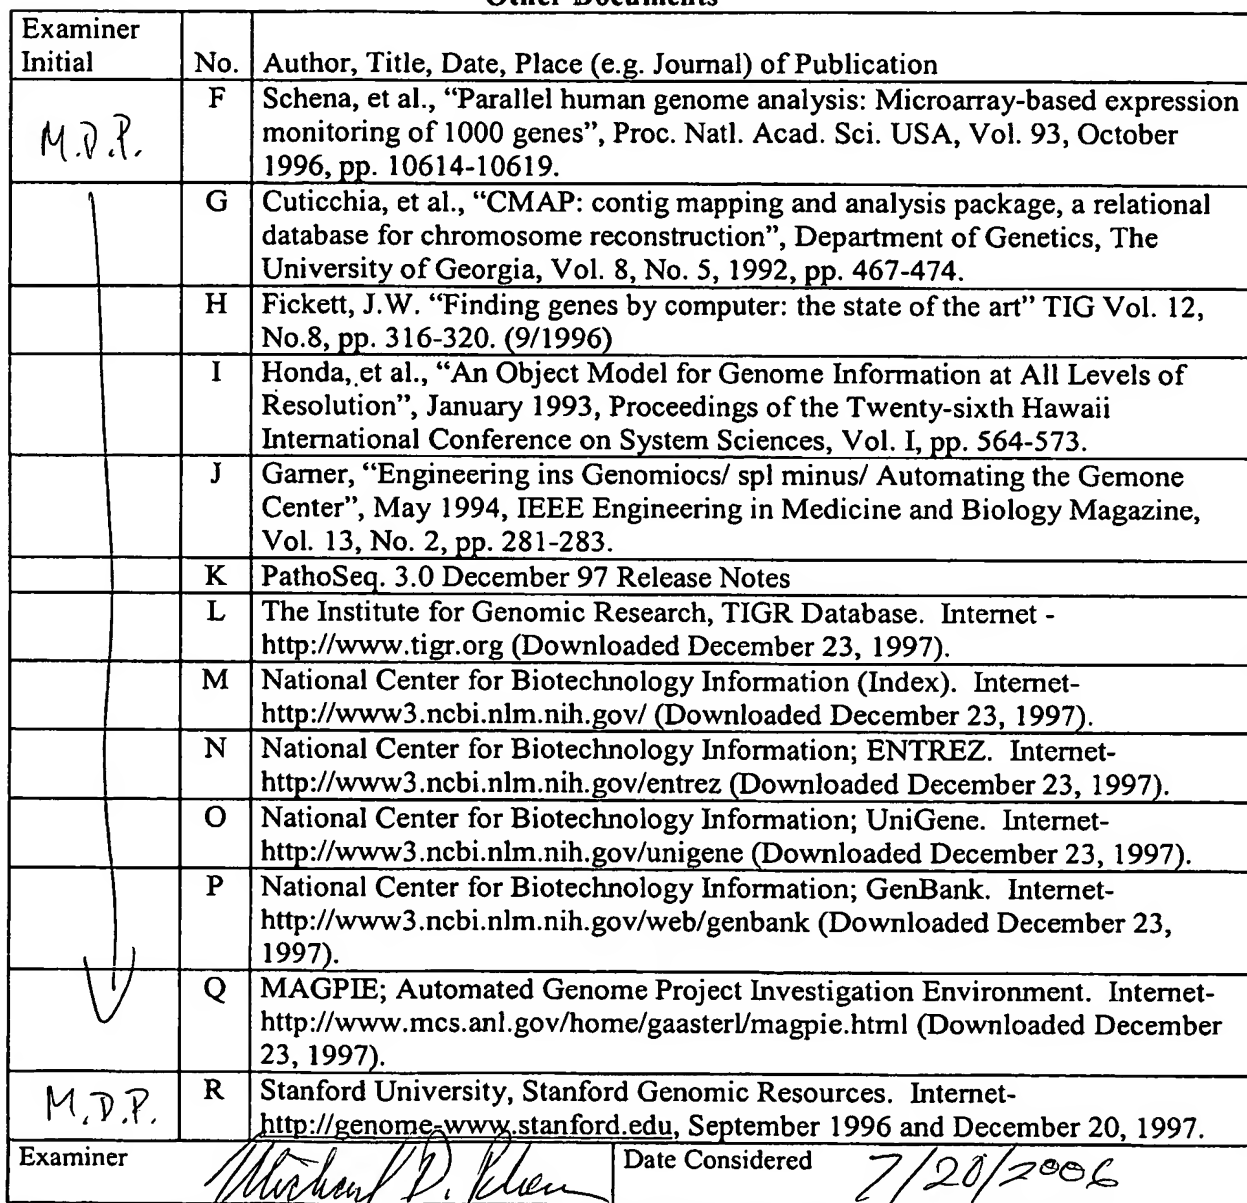 Other Documents
Examiner
Initial No. Author, Title, Date, Place (e.g. Journal) of Publication
M.D.P. F Schena, et al., “Parallel human genome analysis: Microarray-based expression
monitoring of 1000 genes”, Proc. Natl. Acad. Sci. USA, Vol. 93, October
1996, pp. 10614-10619.
G Cuticchia, et al., “CMAP: contig mapping and analysis package, a relational
database for chromosome reconstruction”, Department of Genetics, The
University of Georgia, Vol. 8, No. 5, 1992, pp. 467-474.
H Fickett, J.W. “Finding genes by computer: the state of the art” TIG Vol. 12,
No.8, pp. 316-320. (9/1996)
I Honda, et al., “An Object Model for Genome Information at All Levels of
Resolution”, January 1993, Proceedings of the Twenty-sixth Hawaii
International Conference on System Sciences, Vol. I, pp. 564-573.
J Garner, “Engineering ins Genomiocs/ spl minus/ Automating the Gemone
Center”, May 1994, IEEE Engineering in Medicine and Biology Magazine,
Vol. 13, No. 2, pp. 281-283.
K PathoSeq. 3.0 December 97 Release Notes
L The Institute for Genomic Research, TIGR Database. Internet -
http://www.tigr.org (Downloaded December 23, 1997).
M National Center for Biotechnology Information (Index). Internet-
http://www3.ncbi.nlm.nih.gov/ (Downloaded December 23, 1997).
N National Center for Biotechnology Information; ENTREZ. Internet-
http://www3.ncbi.nlm.nih.gov/entrez (Downloaded December 23, 1997).
O National Center for Biotechnology Information; UniGene. Internet-
http://www3.ncbi.nlm.nih.gov/unigene (Downloaded December 23, 1997).
P National Center for Biotechnology Information; GenBank. Internet-
http://www3.ncbi.nlm.nih.gov/web/genbank (Downloaded December 23,
1997).
Q MAGPIE; Automated Genome Project Investigation Environment. Internet-
http://www.mcs.anl.gov/home/gaasterl/magpie.html (Downloaded December
23, 1997).
M.D.P. R Stanford University, Stanford Genomic Resources. Internet-
http://genome-www.stanford.edu, September 1996 and December 20, 1997.
Examiner Michael D. Date Considered 7/20/2006